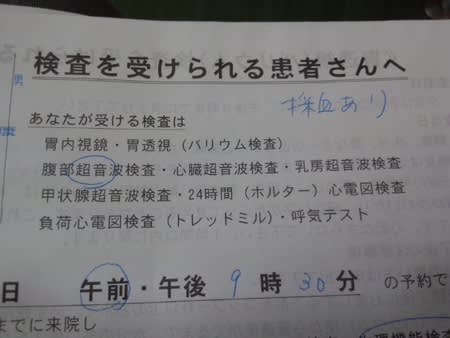 男
検査を受けられる患者さんへ
採血あり
あなたが受ける検査は
胃内視鏡・胃透視(バリウム検査)
腹部超音波検査・心臓超音波検査・乳房超音波検査
甲状腺超音波検査・24時間(ホルター)心電図検査
負荷心電図検査(トレッドミル)・呼気テスト
日 午前・午後 9 時 30 分 の予約で
までに来院し
機能検査